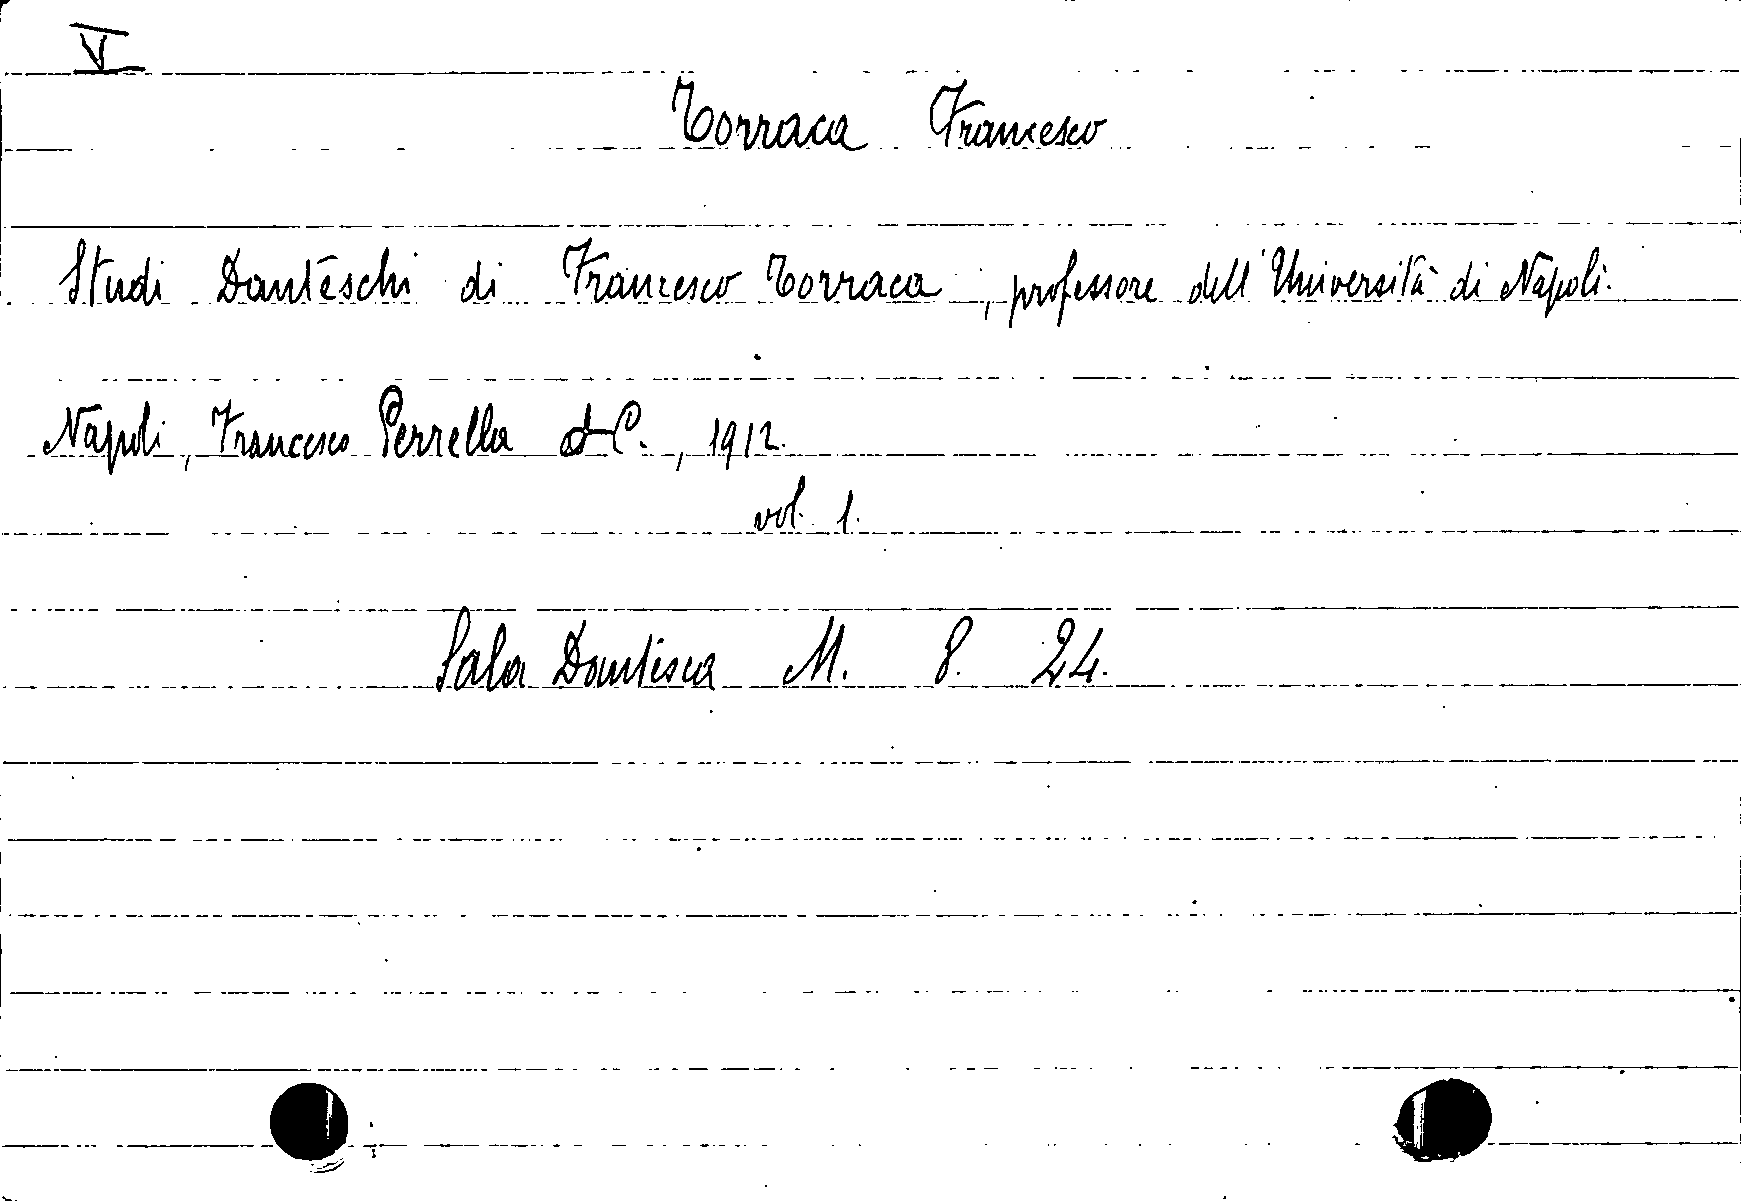 V
Torraca Francesco
Studi Danteschi di Francesco Torraca, professore dell'Università di Napoli.
Napoli, Francesco Perrella & C., 1912.
vol. 1.
Sala Dantesca M. 8. 24.